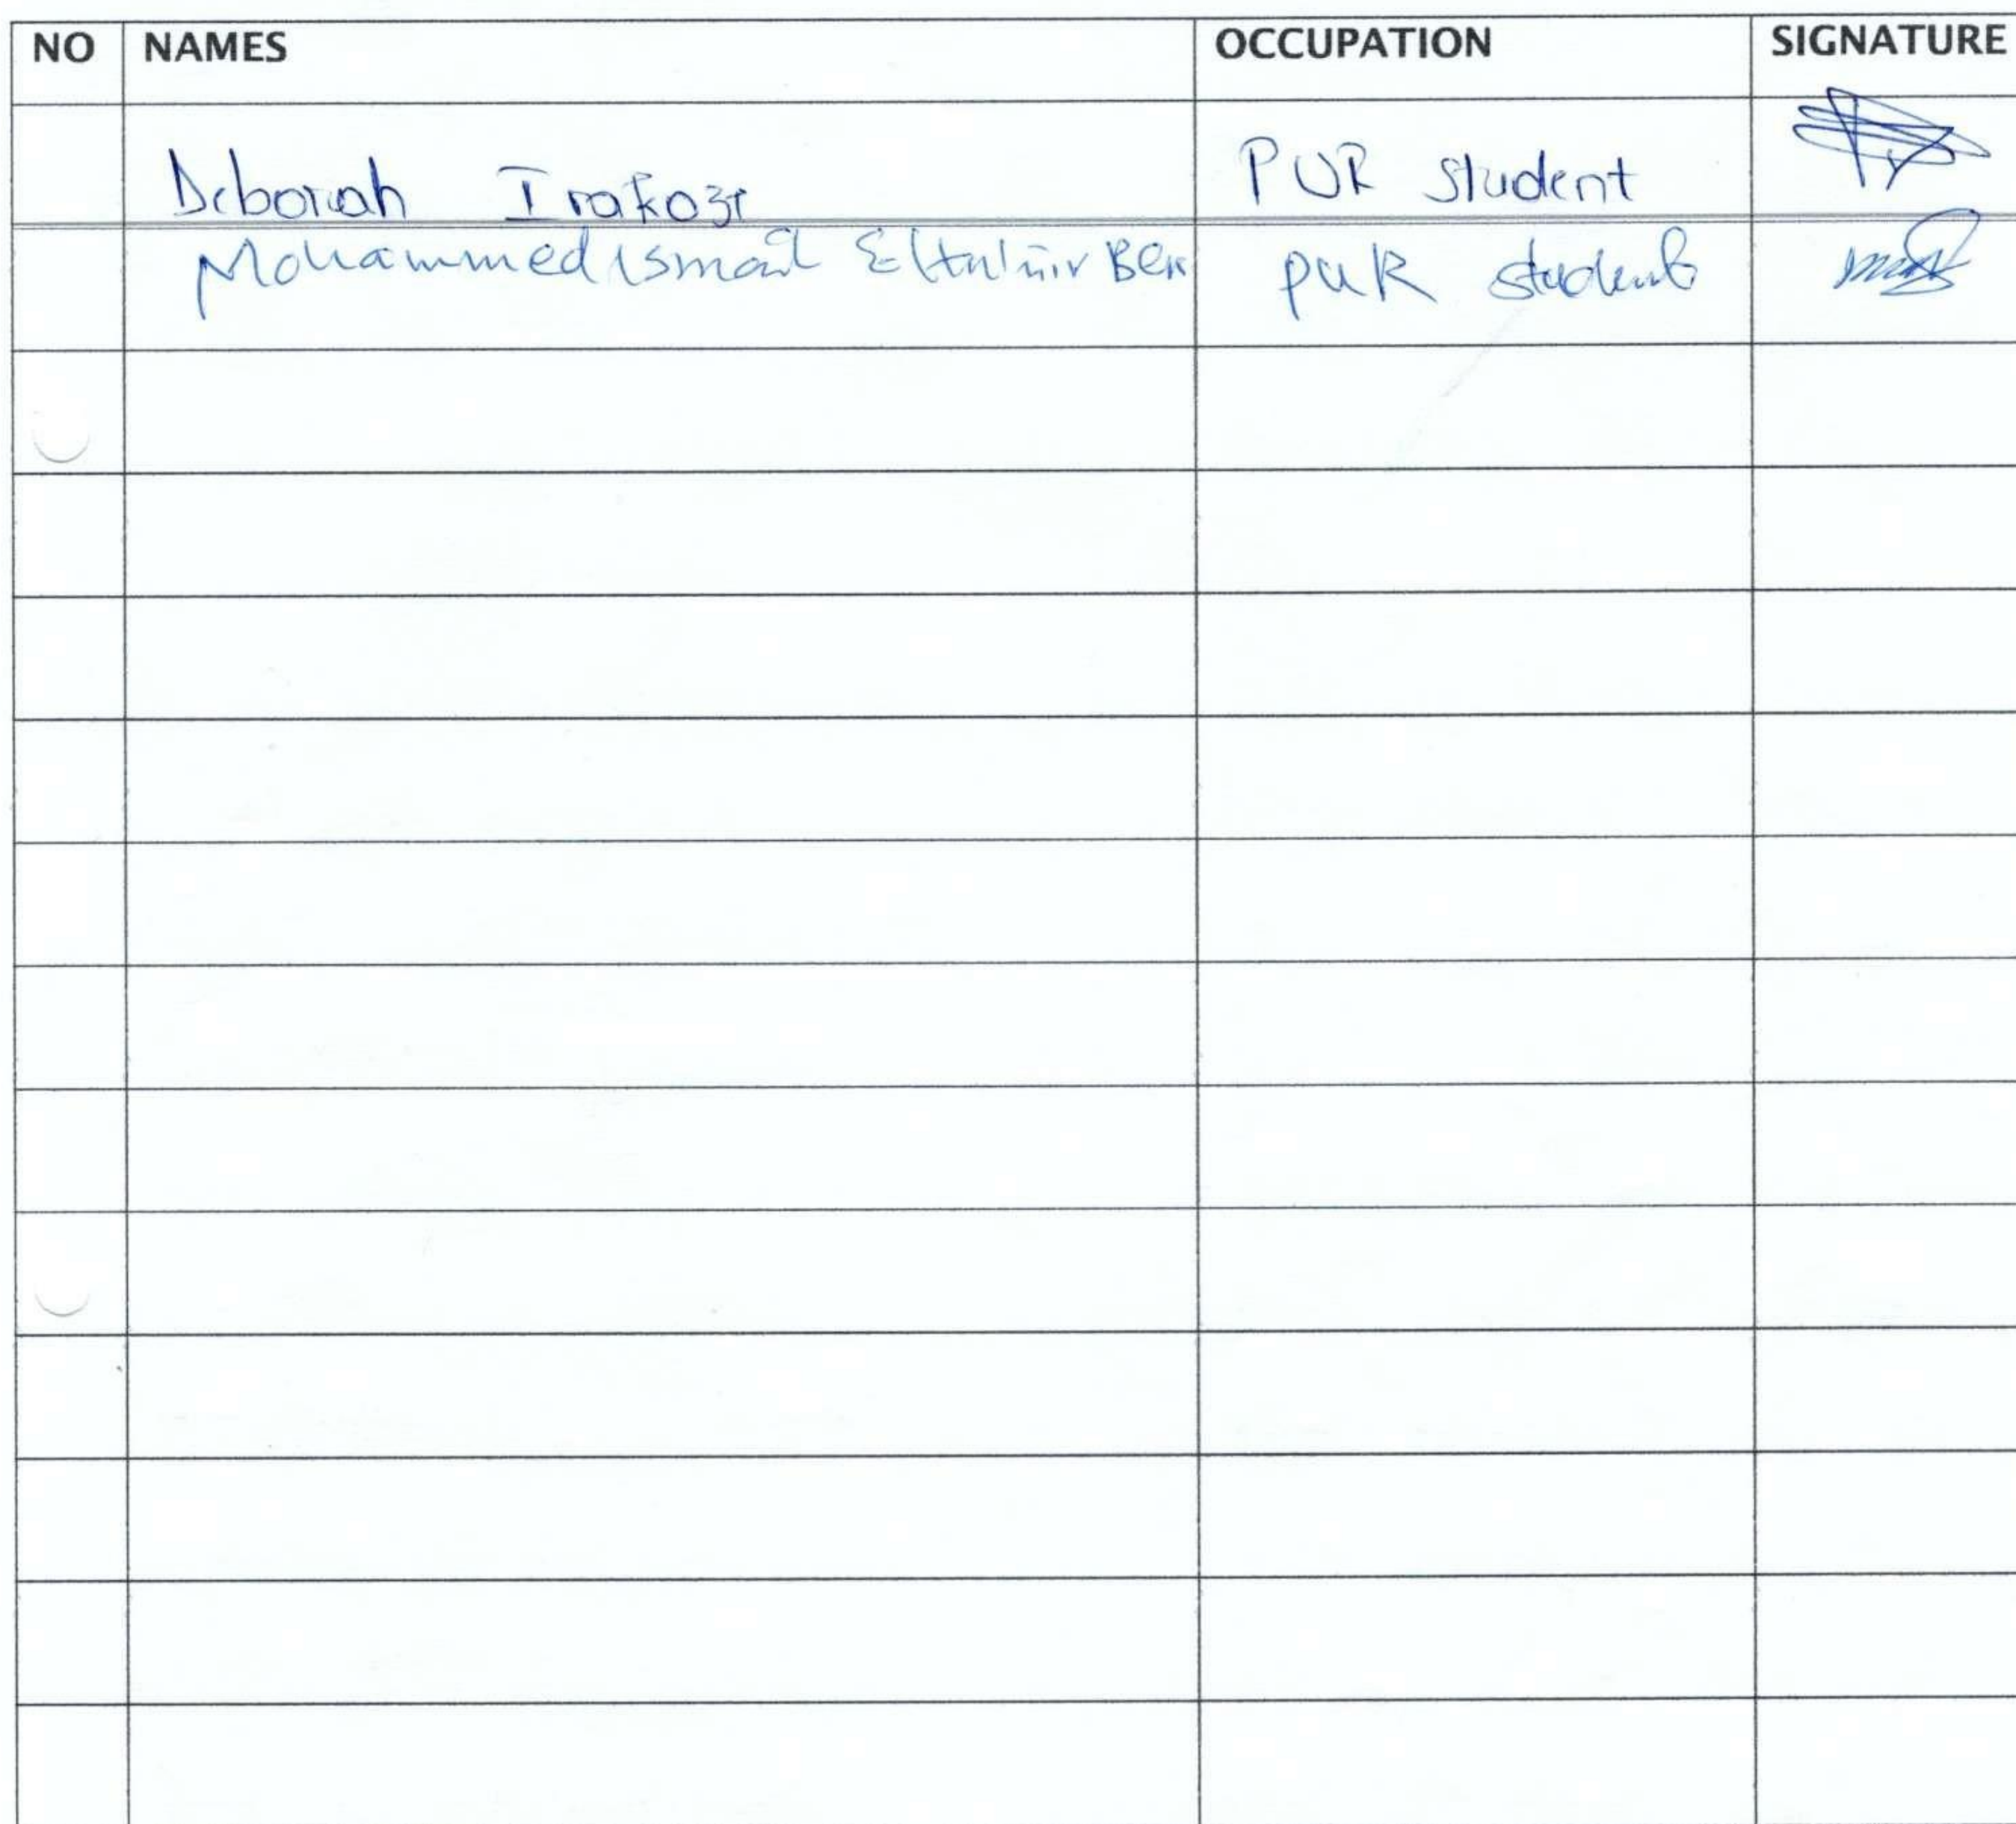 NO NAMES OCCUPATION SIGNATURE
Deborah Irakoze PUR student
Mohammed Ismail PUR student